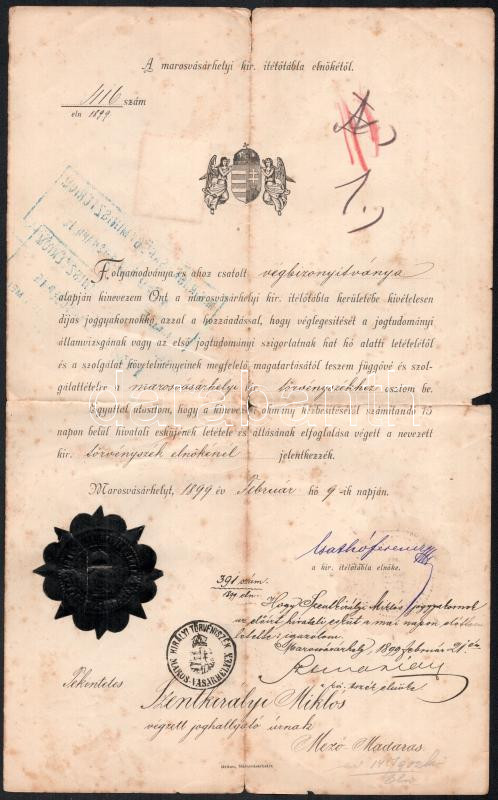 A marosvásárhelyi kir. itélőtábla elnökétől.
1116 szám
eln 1899
A
1.
Folyamodványa és ahoz csatolt végbizonyitványa
alapján kinevezem Önt a marosvásárhelyi kir. itélőtábla kerületébe kivételesen
dijas joggyakornokká azzal a hozzáadással, hogy véglegesitését a jogtudományi
államvizsgának vagy az első jogtudományi szigorlatnak hat hó alatti letételétől
és a szolgálat követelményeinek megfelelő magatartásától teszem függővé és szol-
gálattételre a marosvásárhelyi kir. törvényszékhez osztom be.
Egyuttal utasitom, hogy a kinevező okmány kézbesitésétől számitandó 15
napon belül hivatali esküjének letétele és állásának elfoglalása végett a nevezett
kir. törvényszék elnökénél jelentkezzék.
Marosvásárhelyt, 1899 év Február hó 9-ik napján.
Csathó Ferencz
a kir. itélőtábla elnöke.
391 szám
1899 eln.
Hogy Szentkirályi Miklós joggyakornok
az előirt hivatali esküt a mai napon előttem
letette: igazolom.
Marosvásárhely, 1899 február 21-én
KIRÁLYI TÖRVÉNYSZÉK
MAROS-VÁSÁRHELYEN
Tekintetes
Szentkirályi Miklós
végzett joghallgató úrnak
Mező Madaras
darabanth